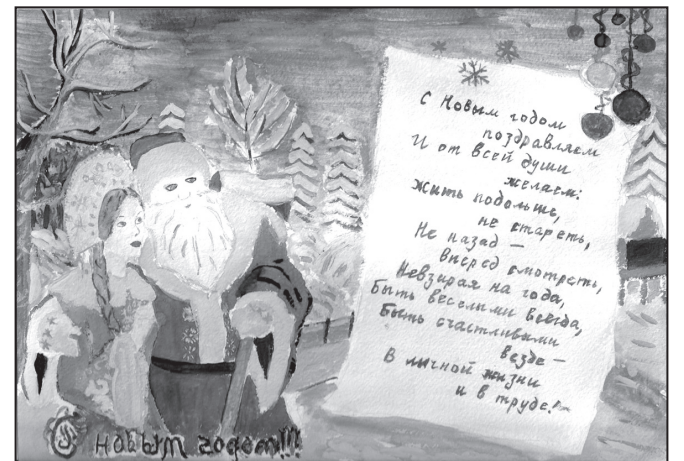 С Новым годом
поздравляем
И от всей души
желаем:
Жить подольше,
не стареть,
Не назад –
вперёд смотреть,
Невзирая на года,
Быть веселыми всегда,
Быть счастливыми
везде –
В личной жизни
и в труде!
С новым годом!!!